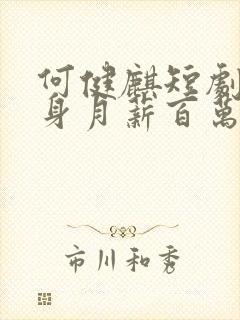 何健麒短劇
身月薪百萬
市川和秀